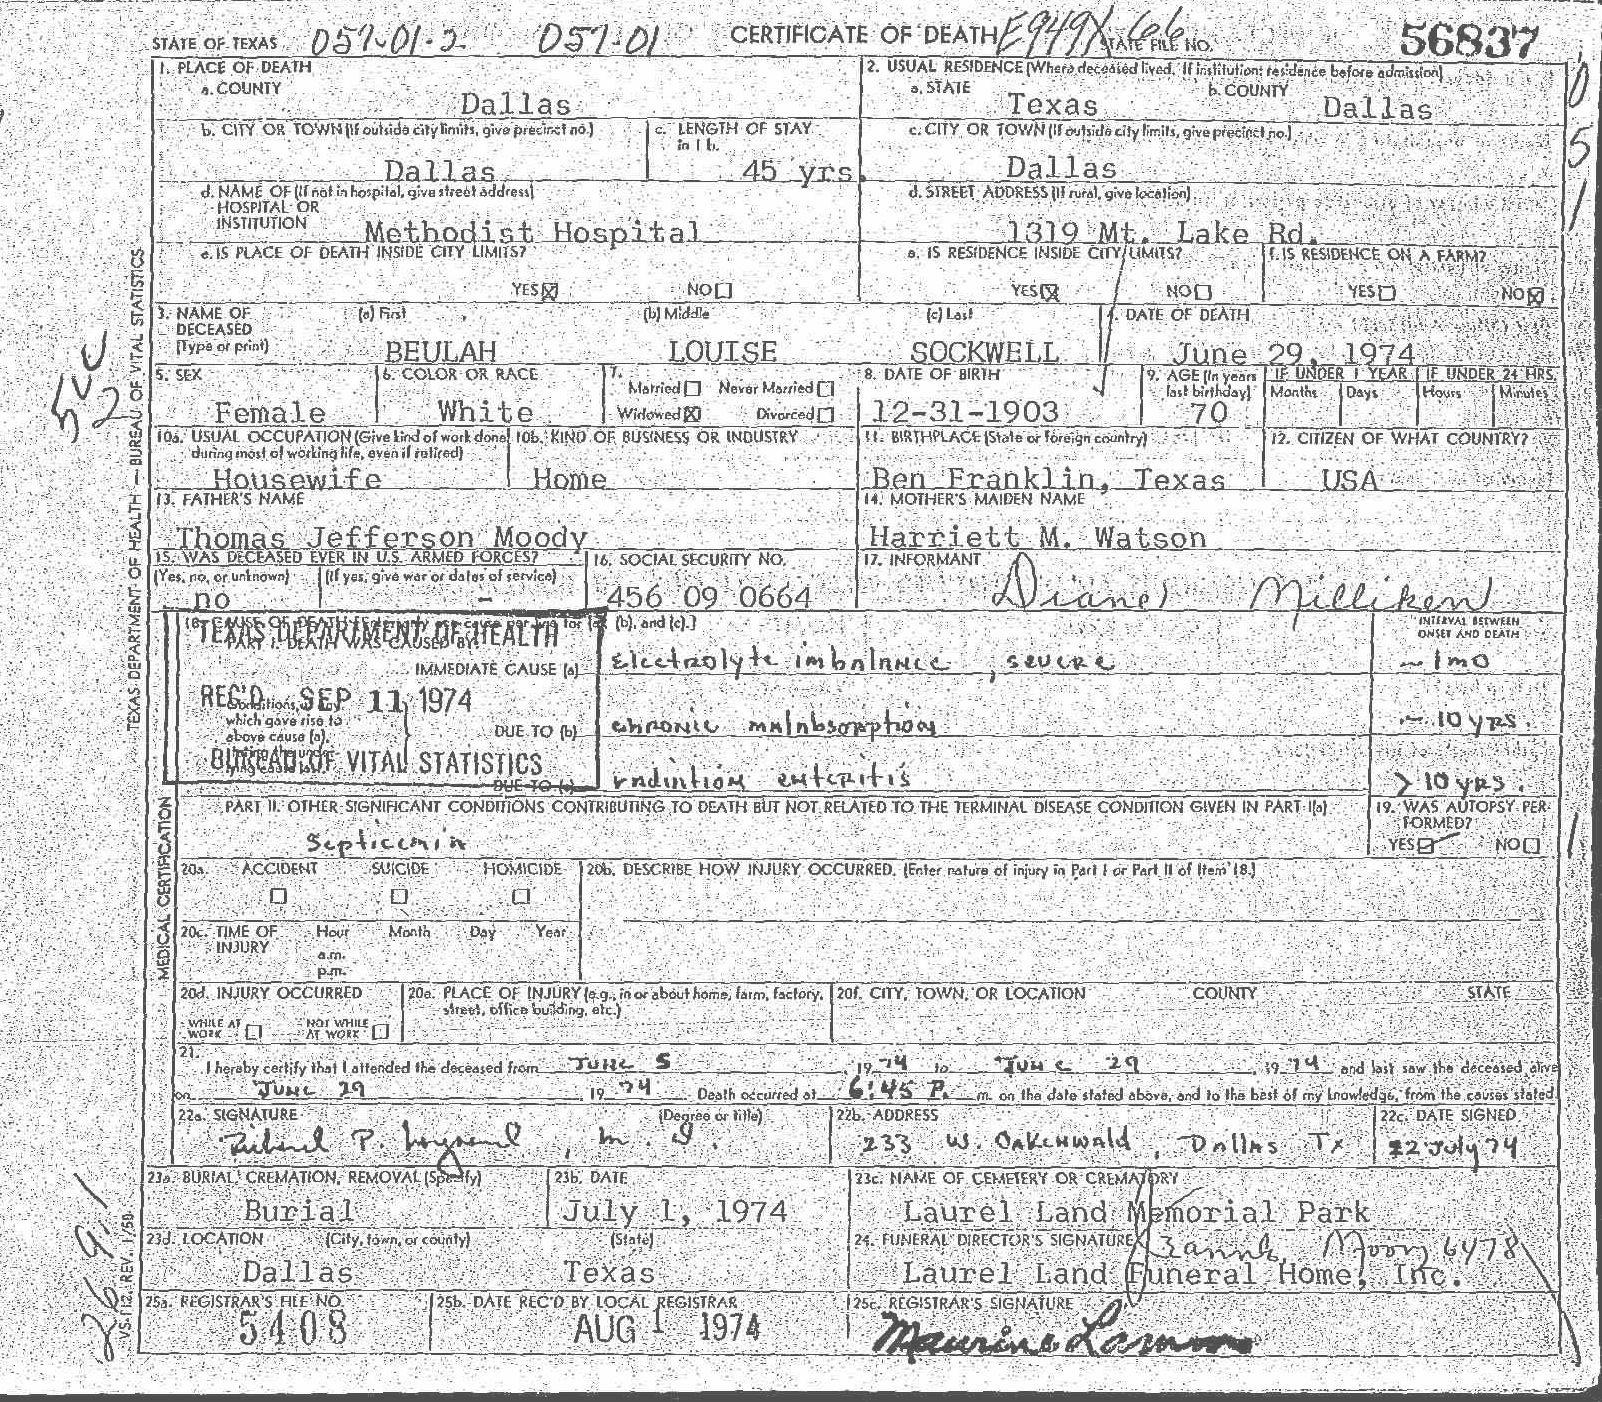 STATE OF TEXAS 057-01-2 057-01 CERTIFICATE OF DEATH E949X-66 STATE FILE NO. 56837
1. PLACE OF DEATH
a. COUNTY
Dallas
2. USUAL RESIDENCE (Where deceased lived. If institution: residence before admission)
a. STATE b. COUNTY
Texas Dallas
b. CITY OR TOWN (If outside city limits, give precinct no.)
Dallas
c. LENGTH OF STAY
in 1 b.
45 yrs.
c. CITY OR TOWN (If outside city limits, give precinct no.)
Dallas
d. NAME OF (If not in hospital, give street address)
HOSPITAL OR
INSTITUTION Methodist Hospital
d. STREET ADDRESS (If rural, give location)
1319 Mt. Lake Rd.
e. IS PLACE OF DEATH INSIDE CITY LIMITS?
YES NO
e. IS RESIDENCE INSIDE CITY LIMITS?
YES NO
f. IS RESIDENCE ON A FARM?
YES NO
3. NAME OF (a) First (b) Middle (c) Last
DECEASED
(Type or print)
BEULAH LOUISE SOCKWELL
4. DATE OF DEATH
June 29, 1974
5. SEX
Female
6. COLOR OR RACE
White
7.
Married Never Married
Widowed Divorced
8. DATE OF BIRTH
12-31-1903
9. AGE (In years
last birthday)
70
IF UNDER 1 YEAR IF UNDER 24 HRS.
Months Days Hours Minutes
10a. USUAL OCCUPATION (Give kind of work done
during most of working life, even if retired)
Housewife
10b. KIND OF BUSINESS OR INDUSTRY
Home
11. BIRTHPLACE (State or foreign country)
Ben Franklin, Texas
12. CITIZEN OF WHAT COUNTRY?
USA
13. FATHER'S NAME
Thomas Jefferson Moody
14. MOTHER'S MAIDEN NAME
Harriett M. Watson
15. WAS DECEASED EVER IN U.S. ARMED FORCES?
(Yes, no, or unknown) (If yes, give war or dates of service)
no -
16. SOCIAL SECURITY NO.
456 09 0664
17. INFORMANT
Diane Milliken
(b), and (c).]
TEXAS DEPARTMENT OF HEALTH
PART I. DEATH WAS CAUSED BY:
INTERVAL BETWEEN
ONSET AND DEATH
IMMEDIATE CAUSE (a) Electrolyte imbalance, severe ~ 1 mo
REC'D SEP 11 1974
which gave rise to
above cause (a),
DUE TO (b) chronic malabsorption ~ 10 yrs.
BUREAU OF VITAL STATISTICS
DUE TO (c) radiation enteritis > 10 yrs.
PART II. OTHER SIGNIFICANT CONDITIONS CONTRIBUTING TO DEATH BUT NOT RELATED TO THE TERMINAL DISEASE CONDITION GIVEN IN PART I(a)
Septicemia
19. WAS AUTOPSY PER-
FORMED?
YES NO
20a. ACCIDENT SUICIDE HOMICIDE
20b. DESCRIBE HOW INJURY OCCURRED. (Enter nature of injury in Part I or Part II of Item 18.)
20c. TIME OF Hour Month Day Year
INJURY a.m.
p.m.
20d. INJURY OCCURRED
WHILE AT WORK NOT WHILE AT WORK
20e. PLACE OF INJURY (e.g., in or about home, farm, factory,
street, office building, etc.)
20f. CITY, TOWN, OR LOCATION COUNTY STATE
21.
I hereby certify that I attended the deceased from June 5, 19 74 to June 29, 19 74 and last saw the deceased alive
on June 29 19 74 Death occurred at 6:45 P. m. on the date stated above, and to the best of my knowledge, from the causes stated.
22a. SIGNATURE (Degree or title)
P. M.D.
22b. ADDRESS
233 W. Oakenwald, Dallas Tx
22c. DATE SIGNED
22 July 74
23a. BURIAL, CREMATION, REMOVAL (Specify)
Burial
23b. DATE
July 1, 1974
23c. NAME OF CEMETERY OR CREMATORY
Laurel Land Memorial Park
23d. LOCATION (City, town, or county) (State)
Dallas Texas
24. FUNERAL DIRECTOR'S SIGNATURE 6478
Laurel Land Funeral Home, Inc.
25a. REGISTRAR'S FILE NO.
5408
25b. DATE REC'D BY LOCAL REGISTRAR
AUG 1 1974
25c. REGISTRAR'S SIGNATURE
TEXAS DEPARTMENT OF HEALTH — BUREAU OF VITAL STATISTICS
MEDICAL CERTIFICATION
VS-112, REV. 1/58
051